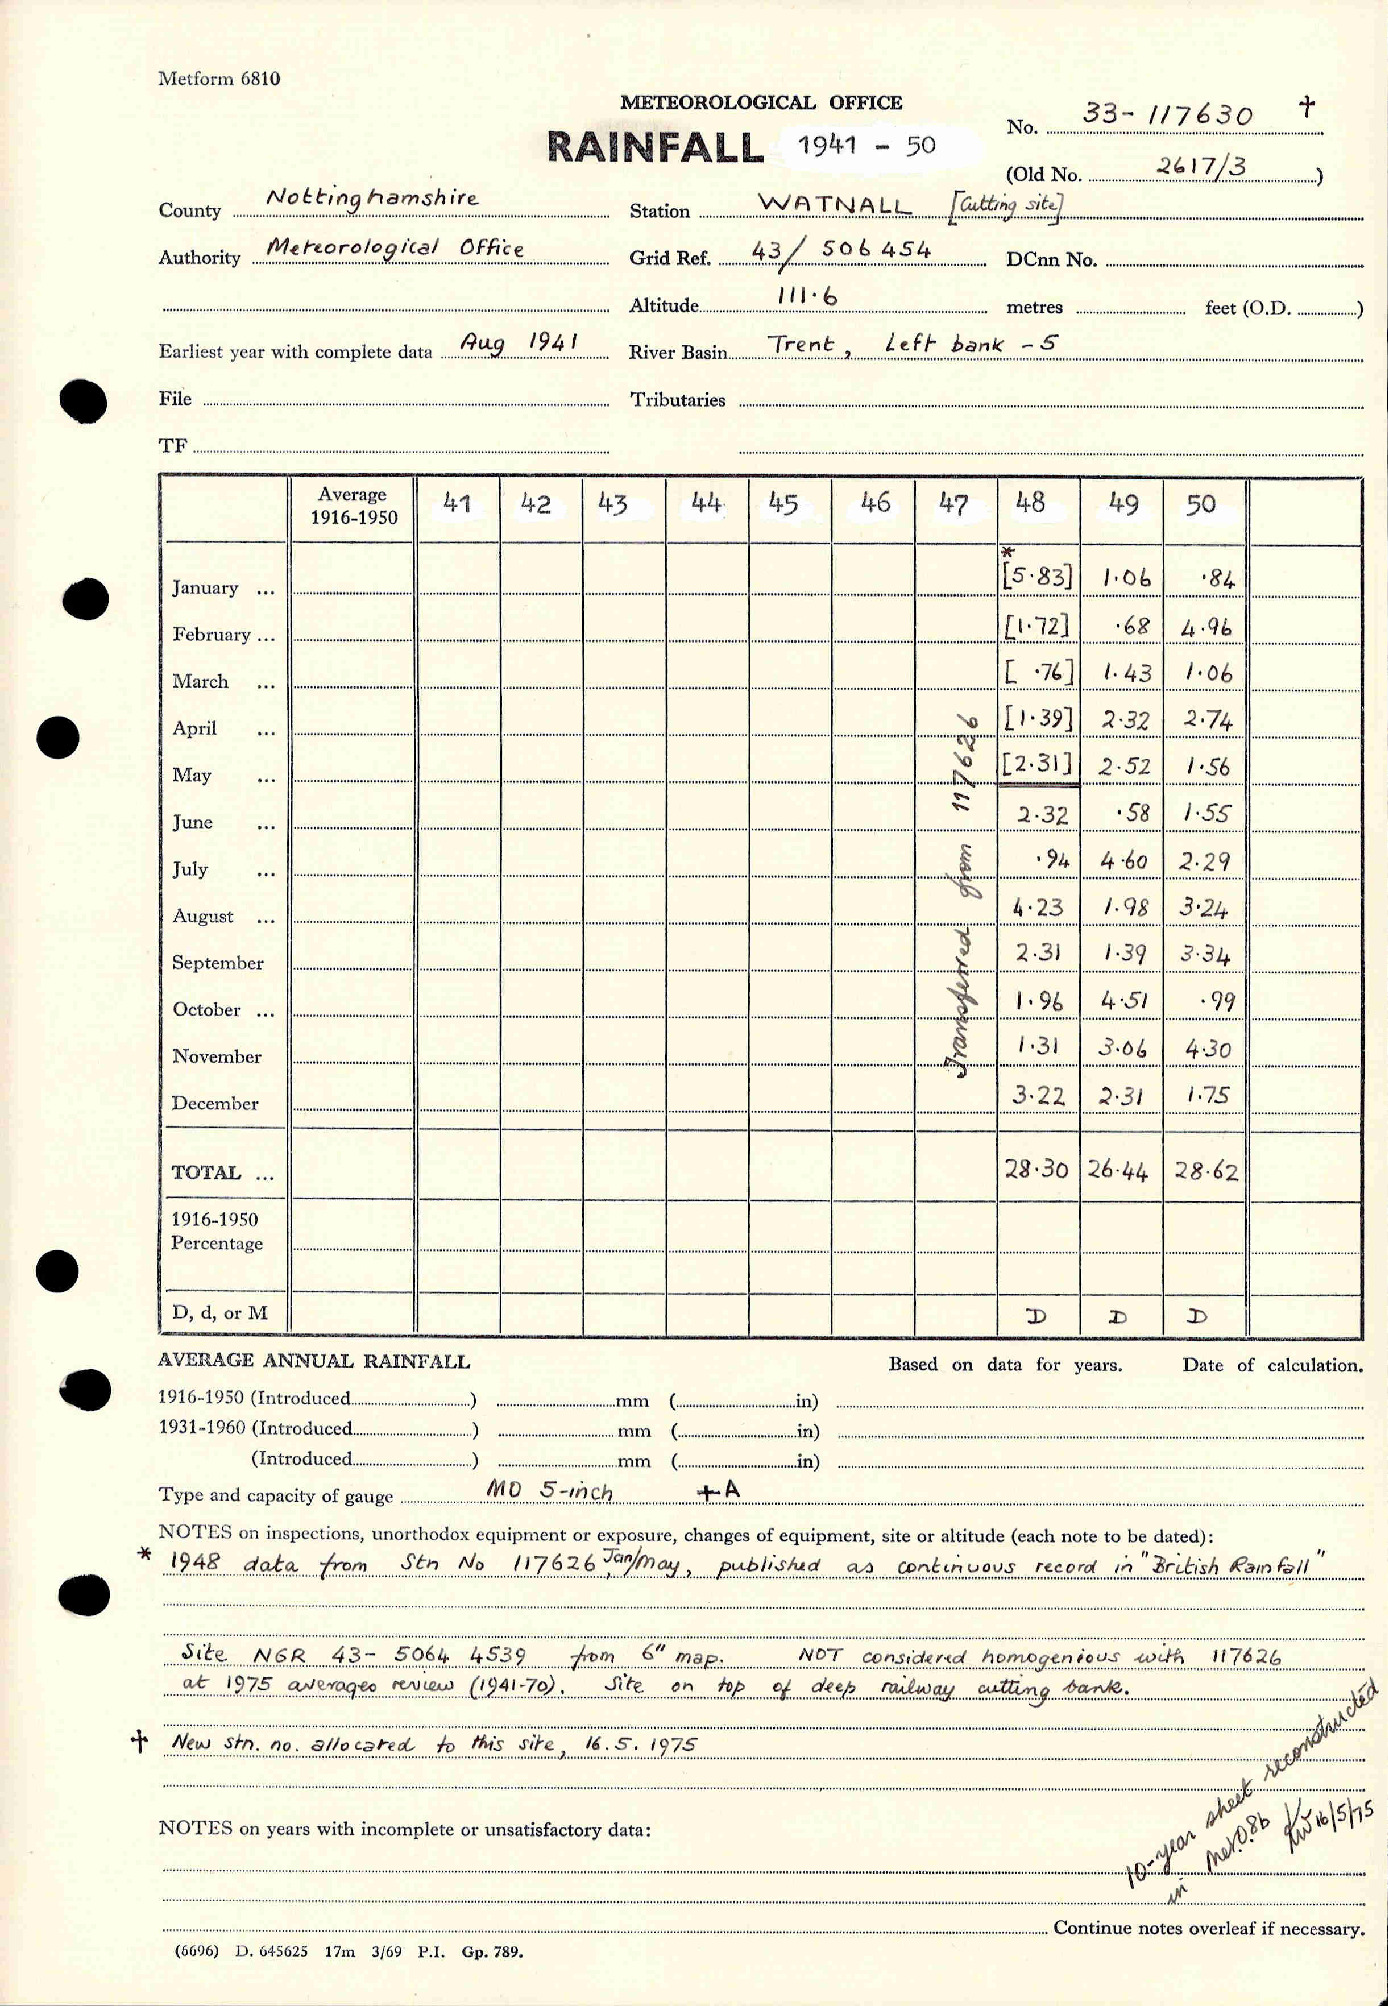 Metform 6810
METEOROLOGICAL OFFICE
RAINFALL 1941 - 50
No. 33-117630 †
(Old No. 2617/3)
County Nottinghamshire Station WATNALL [Cutting site]
Authority Meteorological Office Grid Ref. 43/ 506 454 DCnn No.
Altitude 111·6 metres feet (O.D. )
Earliest year with complete data Aug 1941 River Basin Trent, Left bank - 5
File Tributaries
TF
Average 1916-1950 41 42 43 44 45 46 47 48 49 50
January ... * [5·83] 1·06 ·84
February ... [1·72] ·68 4·96
March ... [ ·76] 1·43 1·06
April ... [1·39] 2·32 2·74
May ... [2·31] 2·52 1·56
June ... 2·32 ·58 1·55
July ... ·94 4·60 2·29
August ... 4·23 1·98 3·24
September 2·31 1·39 3·34
October ... 1·96 4·51 ·99
November 1·31 3·06 4·30
December 3·22 2·31 1·75
Transferred from 117626
TOTAL ... 28·30 26·44 28·62
1916-1950
Percentage
D, d, or M D D D
AVERAGE ANNUAL RAINFALL Based on data for years. Date of calculation.
1916-1950 (Introduced ) mm ( in)
1931-1960 (Introduced ) mm ( in)
(Introduced ) mm ( in)
Type and capacity of gauge MO 5-inch +A
NOTES on inspections, unorthodox equipment or exposure, changes of equipment, site or altitude (each note to be dated):
* 1948 data from Stn No 117626, Jan/May, published as continuous record in "British Rainfall"
Site NGR 43- 5064 4539 from 6" map. NOT considered homogenious with 117626
at 1975 averages review (1941-70). Site on top of deep railway cutting bank.
† New stn. no. allocated to this site, 16.5.1975
10-year sheet reconstructed
in Met.O.8b 16/5/75
NOTES on years with incomplete or unsatisfactory data:
Continue notes overleaf if necessary.
(6696) D. 645625 17m 3/69 P.I. Gp. 789.